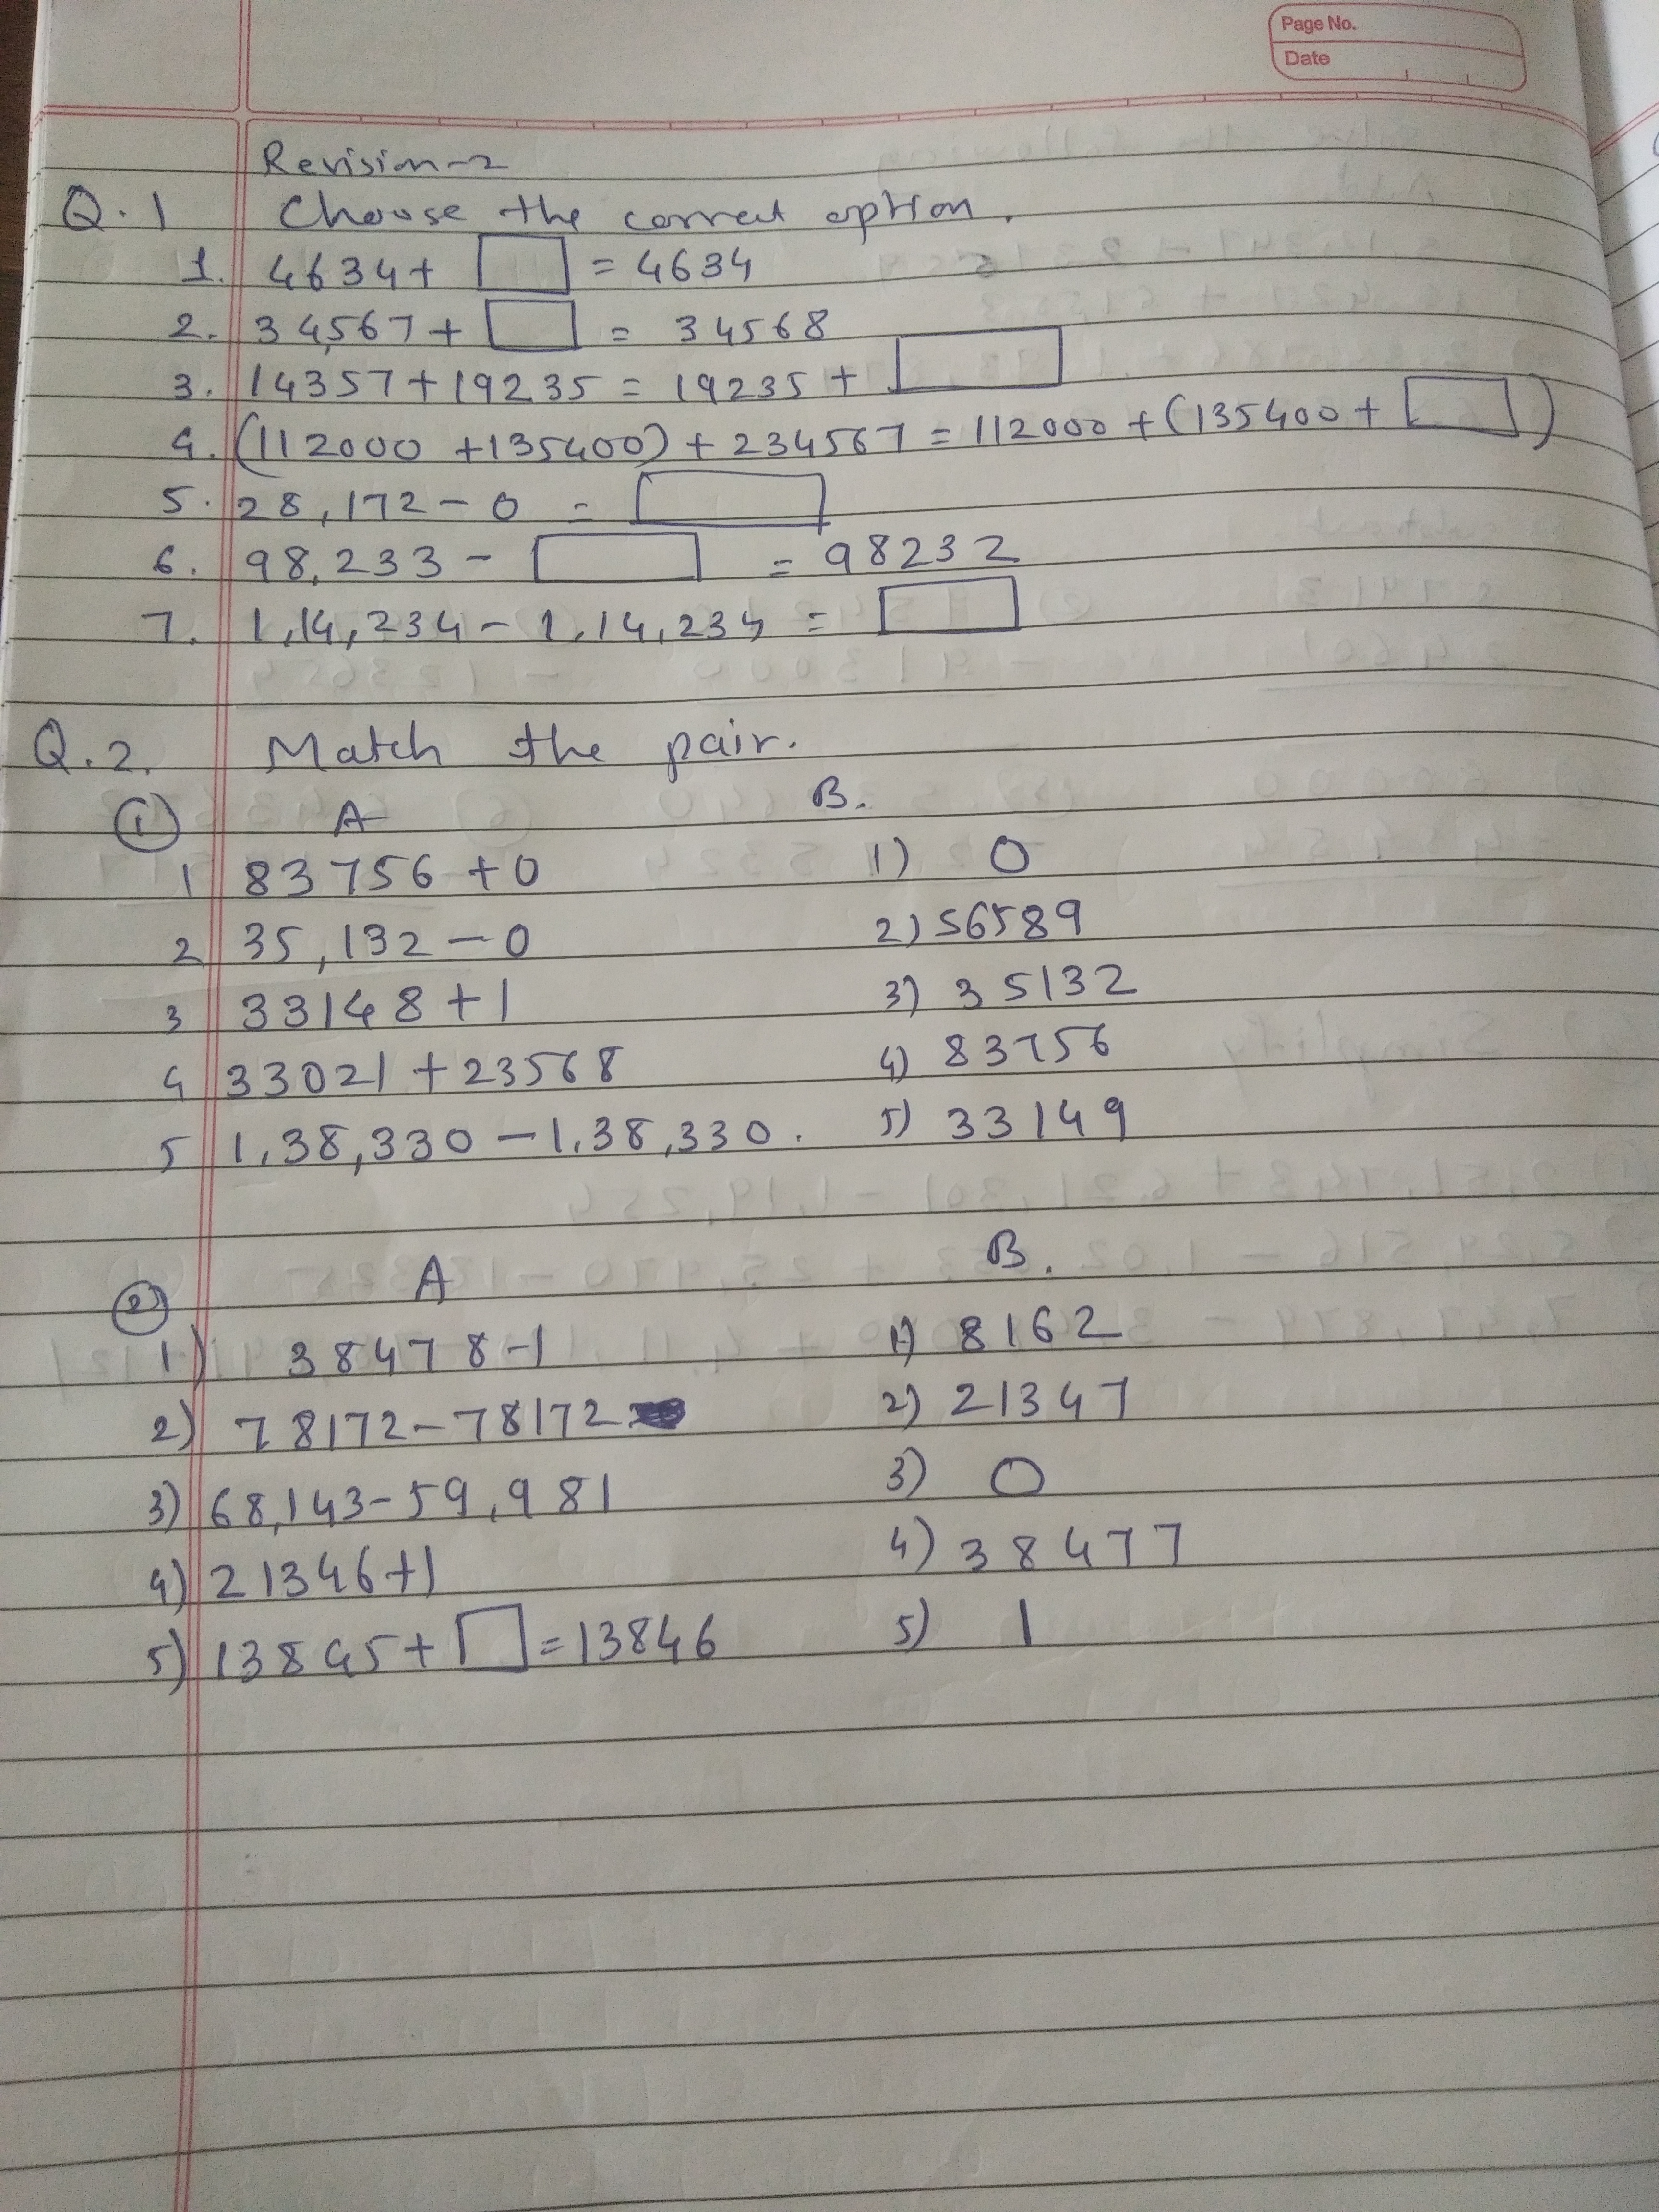 Page No.
Date
Revision-2
Q.1 Choose the correct option.
1. 4634+ □ = 4634
2. 34,567+ □ = 34568
3. 14357+19235 = 19235 + □
4. (112000 +135400) + 234567 = 112000 + (135400 + □)
5. 28,172 - 0 = □
6. 98,233 - □ = 98232
7. 1,14,234 - 1,14,234 = □
Q.2. Match the pair.
① A B.
1 83756 +0 1) 0
2 35,132 - 0 2) 56589
3 33148 + 1 3) 35132
4 33021 + 23568 4) 83756
5 1,38,330 - 1,38,330. 5) 33149
② A B.
1) 38478-1 1) 8162
2) 78172-78172 2) 21347
3) 68,143-59,981 3) 0
4) 21346+1 4) 38477
5) 13845+ □ = 13846 5) 1